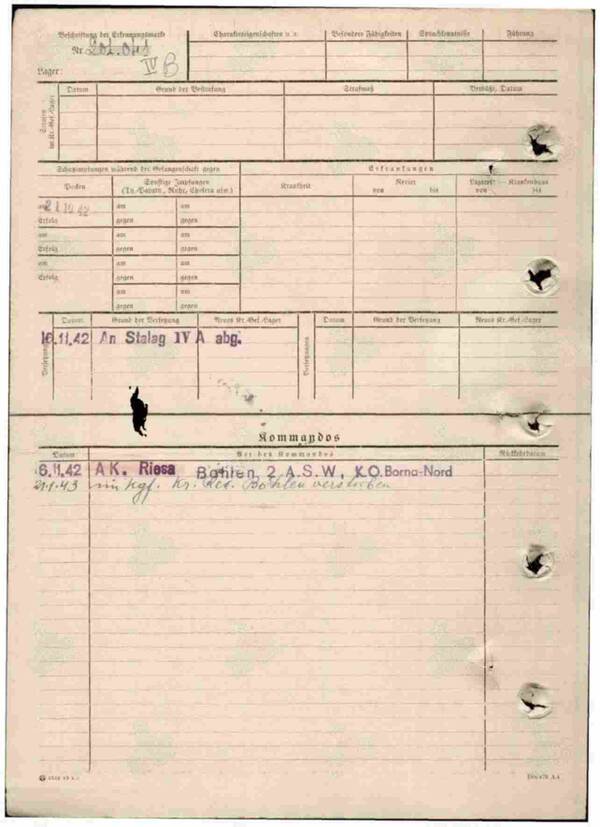 Beschriftung der Erkennungsmarke
Nr.
IV B
Lager:
Charaktereigenschaften u. a.
Besondere Fähigkeiten
Sprachkenntnisse
Führung
Strafen im Kr.-Gef.-Lager
Datum
Grund der Bestrafung
Strafmaß
Verbüßt, Datum
Schutzimpfungen während der Gefangenschaft gegen
Erkrankungen
Pocken
Sonstige Impfungen
(Ty.-Paraty., Ruhr, Cholera usw.)
Krankheit
Revier
von bis
Lazarett – Krankenhaus
von bis
am 21.10.42 am am
Erfolg gegen gegen
am am am
Erfolg gegen gegen
am am am
Erfolg gegen gegen
am am
gegen gegen
Versetzungen
Datum Grund der Versetzung Neues Kr.-Gef.-Lager
Versetzungen
Datum Grund der Versetzung Neues Kr.-Gef.-Lager
16.11.42 An Stalag IV A abg.
Kommandos
Datum Art des Kommandos Rückkehrdatum
6.11.42 AK. Riesa Böhlen, 2 A.S.W., K.O. Borna-Nord
21.1.43 im Kgf. Kr. Res. Böhlen verstorben